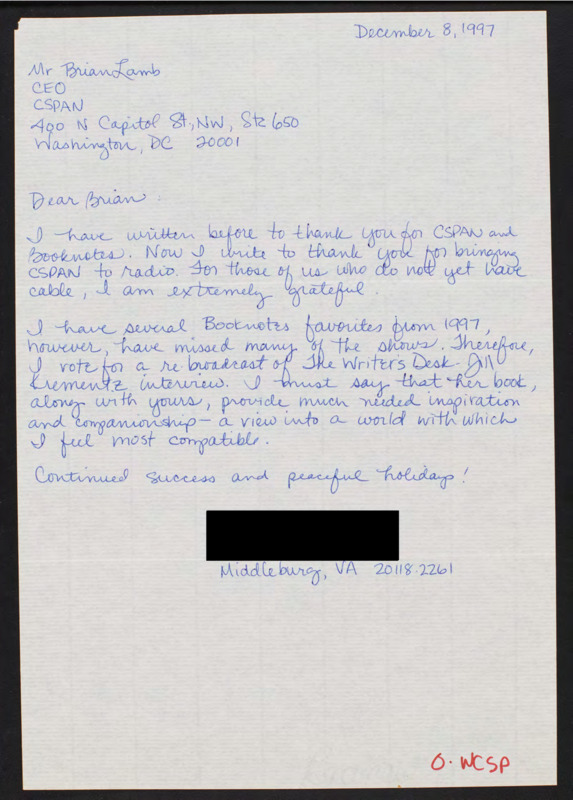 December 8, 1997
Mr Brian Lamb
CEO
CSPAN
400 N Capitol St, NW, Ste 650
Washington, DC 20001
Dear Brian.
I have written before to thank you for CSPAN and
Booknotes. Now I write to thank you for bringing
CSPAN to radio. For those of us who do not yet have
cable, I am extremely grateful.
I have several Booknotes favorites from 1997,
however, have missed many of the shows. Therefore,
I vote for a re-broadcast of The Writer's Desk - Jill
Krementz interview. I must say that her book,
along with yours, provide much needed inspiration
and companionship - a view into a world with which
I feel most compatible.
Continued success and peaceful holidays!
Middleburg, VA 20118.2261
O. WCSP